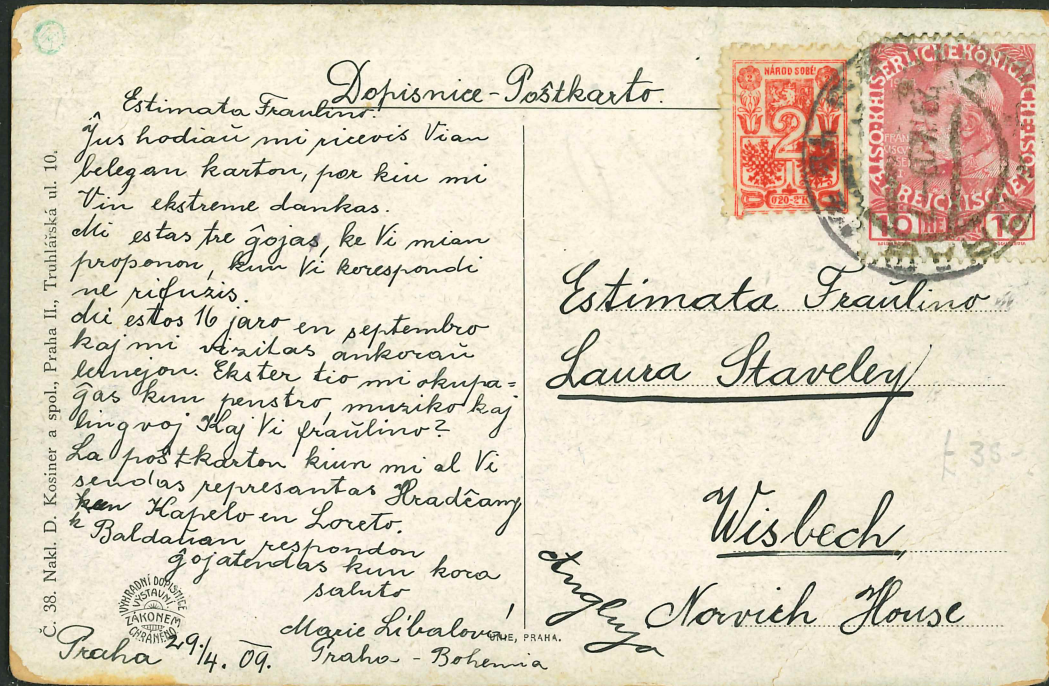 Dopisnice-Poštkarto.
Estimata Fraŭlino.
Ĵus hodiaŭ mi ricevis Vian
belegan karton, por kiu mi
Vin ekstreme dankas.
Mi estas tre ĝojas, ke Vi mian
proponon, kun Vi korespondi
ne rifuzis.
Mi estos 16 jaro en septembro
kaj mi vizitas ankoraŭ
lernejon. Ekster tio mi okupa=
ĝas kun penstro, muziko kaj
lingvoj Kaj Vi fraŭlino?
La poŝtkarton kiun mi al Vi
sendas represantas Hradčany
kun Kapelo en Loreto.
Baldaŭan respondon
ĝojatendas kun kora
saluto
Marie Líbalová
Praha - Bohemia
Praha 29./4. 09.
Č. 38. Nakl. D. Kosiner a spol., Praha II., Truhlářská ul. 10.
VÝHRADNÍ DOPISNICE
VÝSTAVNÍ
ZÁKONEM
CHRÁNĚNO
UNIE, PRAHA.
NÁROD SOBĚ!
2
10 HELLER 10
Estimata Fraŭlino
Laura Staveley
Wisbech,
Norvich House
Anglujo
£ 35-